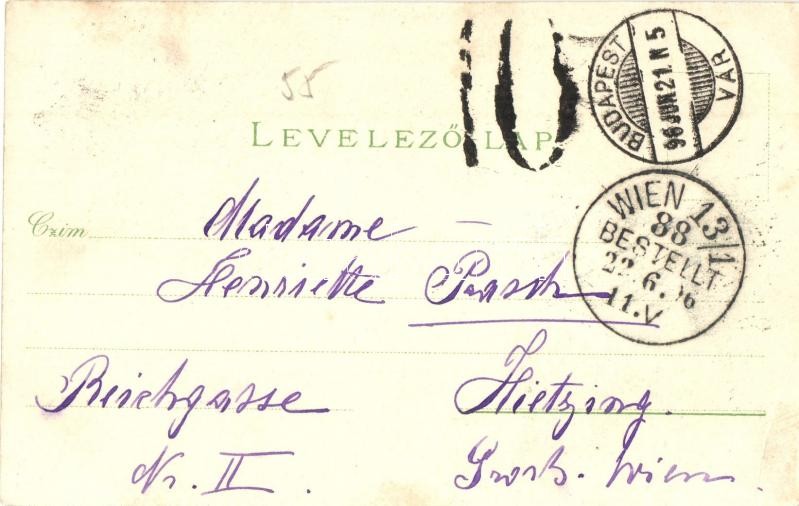 55
10
BUDAPEST VÁR
96 JUN. 21. N 5
LEVELEZŐ-LAP
WIEN 13/1
88
BESTELLT
22.6.96
11.V
Czim
Madame
Henriette Prasch
Reichgasse Hietzing.
Nr. II. Wien